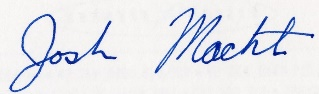 Josh Macht